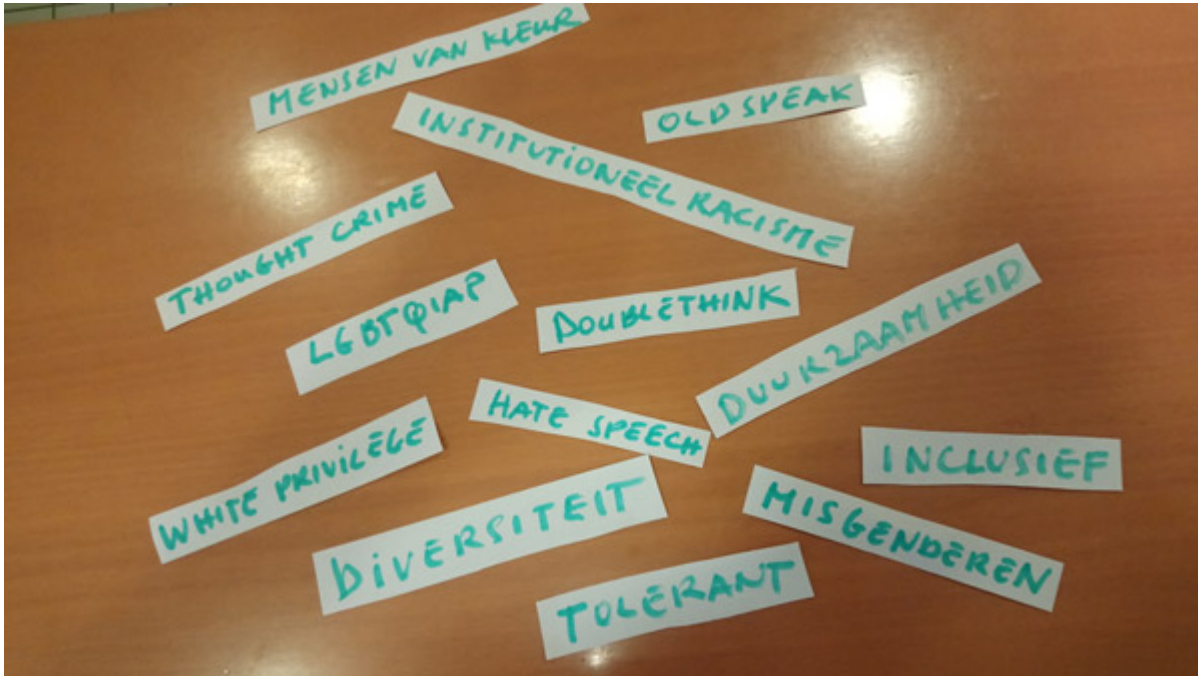 MENSEN VAN KLEUR
OLD SPEAK
INSTITUTIONEEL RACISME
THOUGHT CRIME
LGBTQIAP
DOUBLETHINK
DUURZAAMHEID
HATE SPEECH
WHITE PRIVILEGE
INCLUSIEF
DIVERSITEIT
MISGENDEREN
TOLERANT